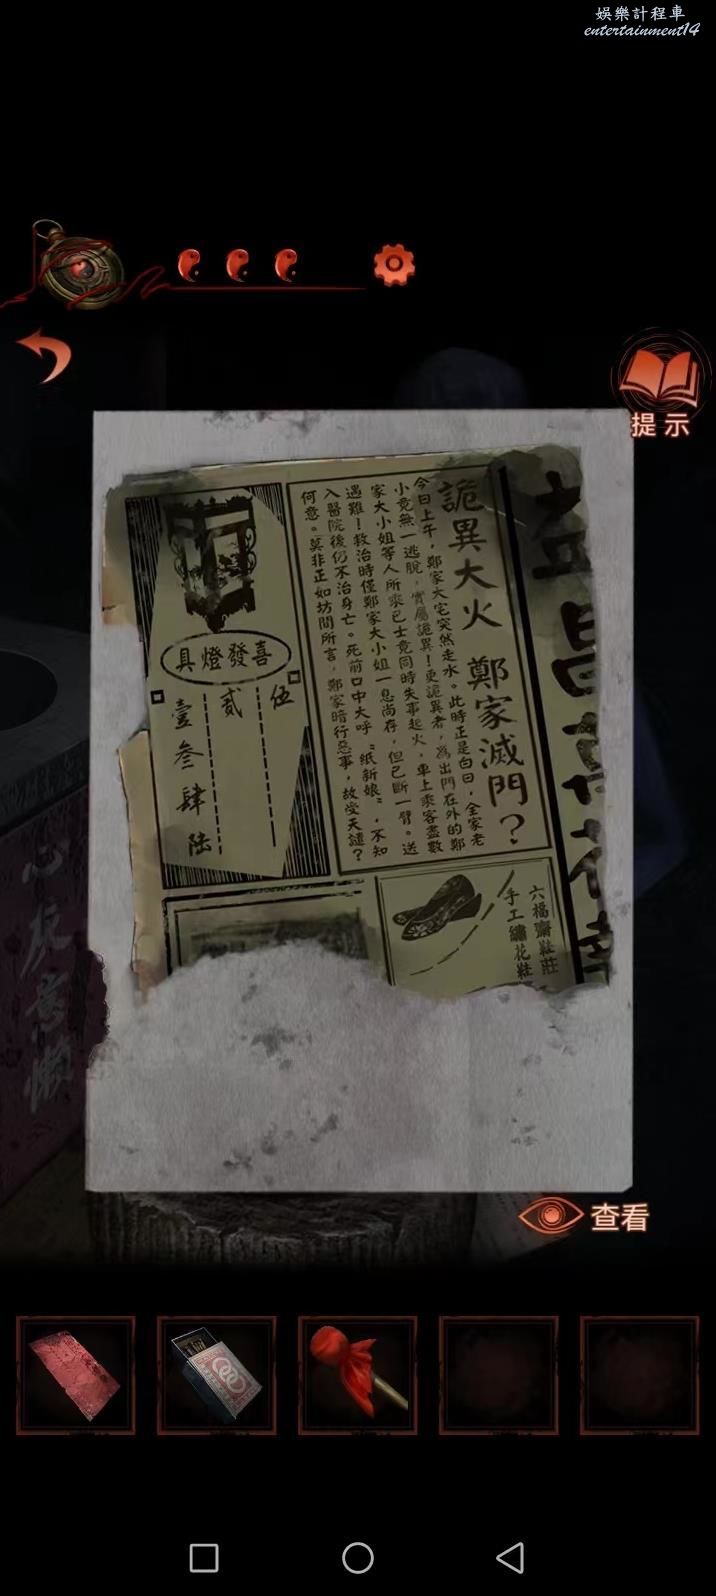 娛樂計程車
entertainment14
提示
詭異大火 鄭家滅門？
今日上午，鄭家大宅突然走水。此時正是白日，全家老
小竟無一逃脫，實屬詭異！更詭異者，為出門在外的鄭
家大小姐等人所乘巴士竟同時失事起火，車上乘客盡數
遇難！救治時僅鄭家大小姐一息尚存，但已斷一臂。送
入醫院後仍不治身亡。死前口中大呼“纸新娘”，不知
何意。莫非正如坊間所言，鄭家暗行惡事，故受天譴？
喜發燈具
伍
貳
壹叁肆陸
六福齋鞋莊
手工繡花鞋
心灰意懶
查看